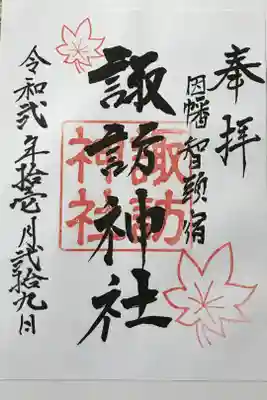 奉拝
因幡智頭宿
諏訪神社
諏訪神社
令和弐年拾壱月弐拾九日